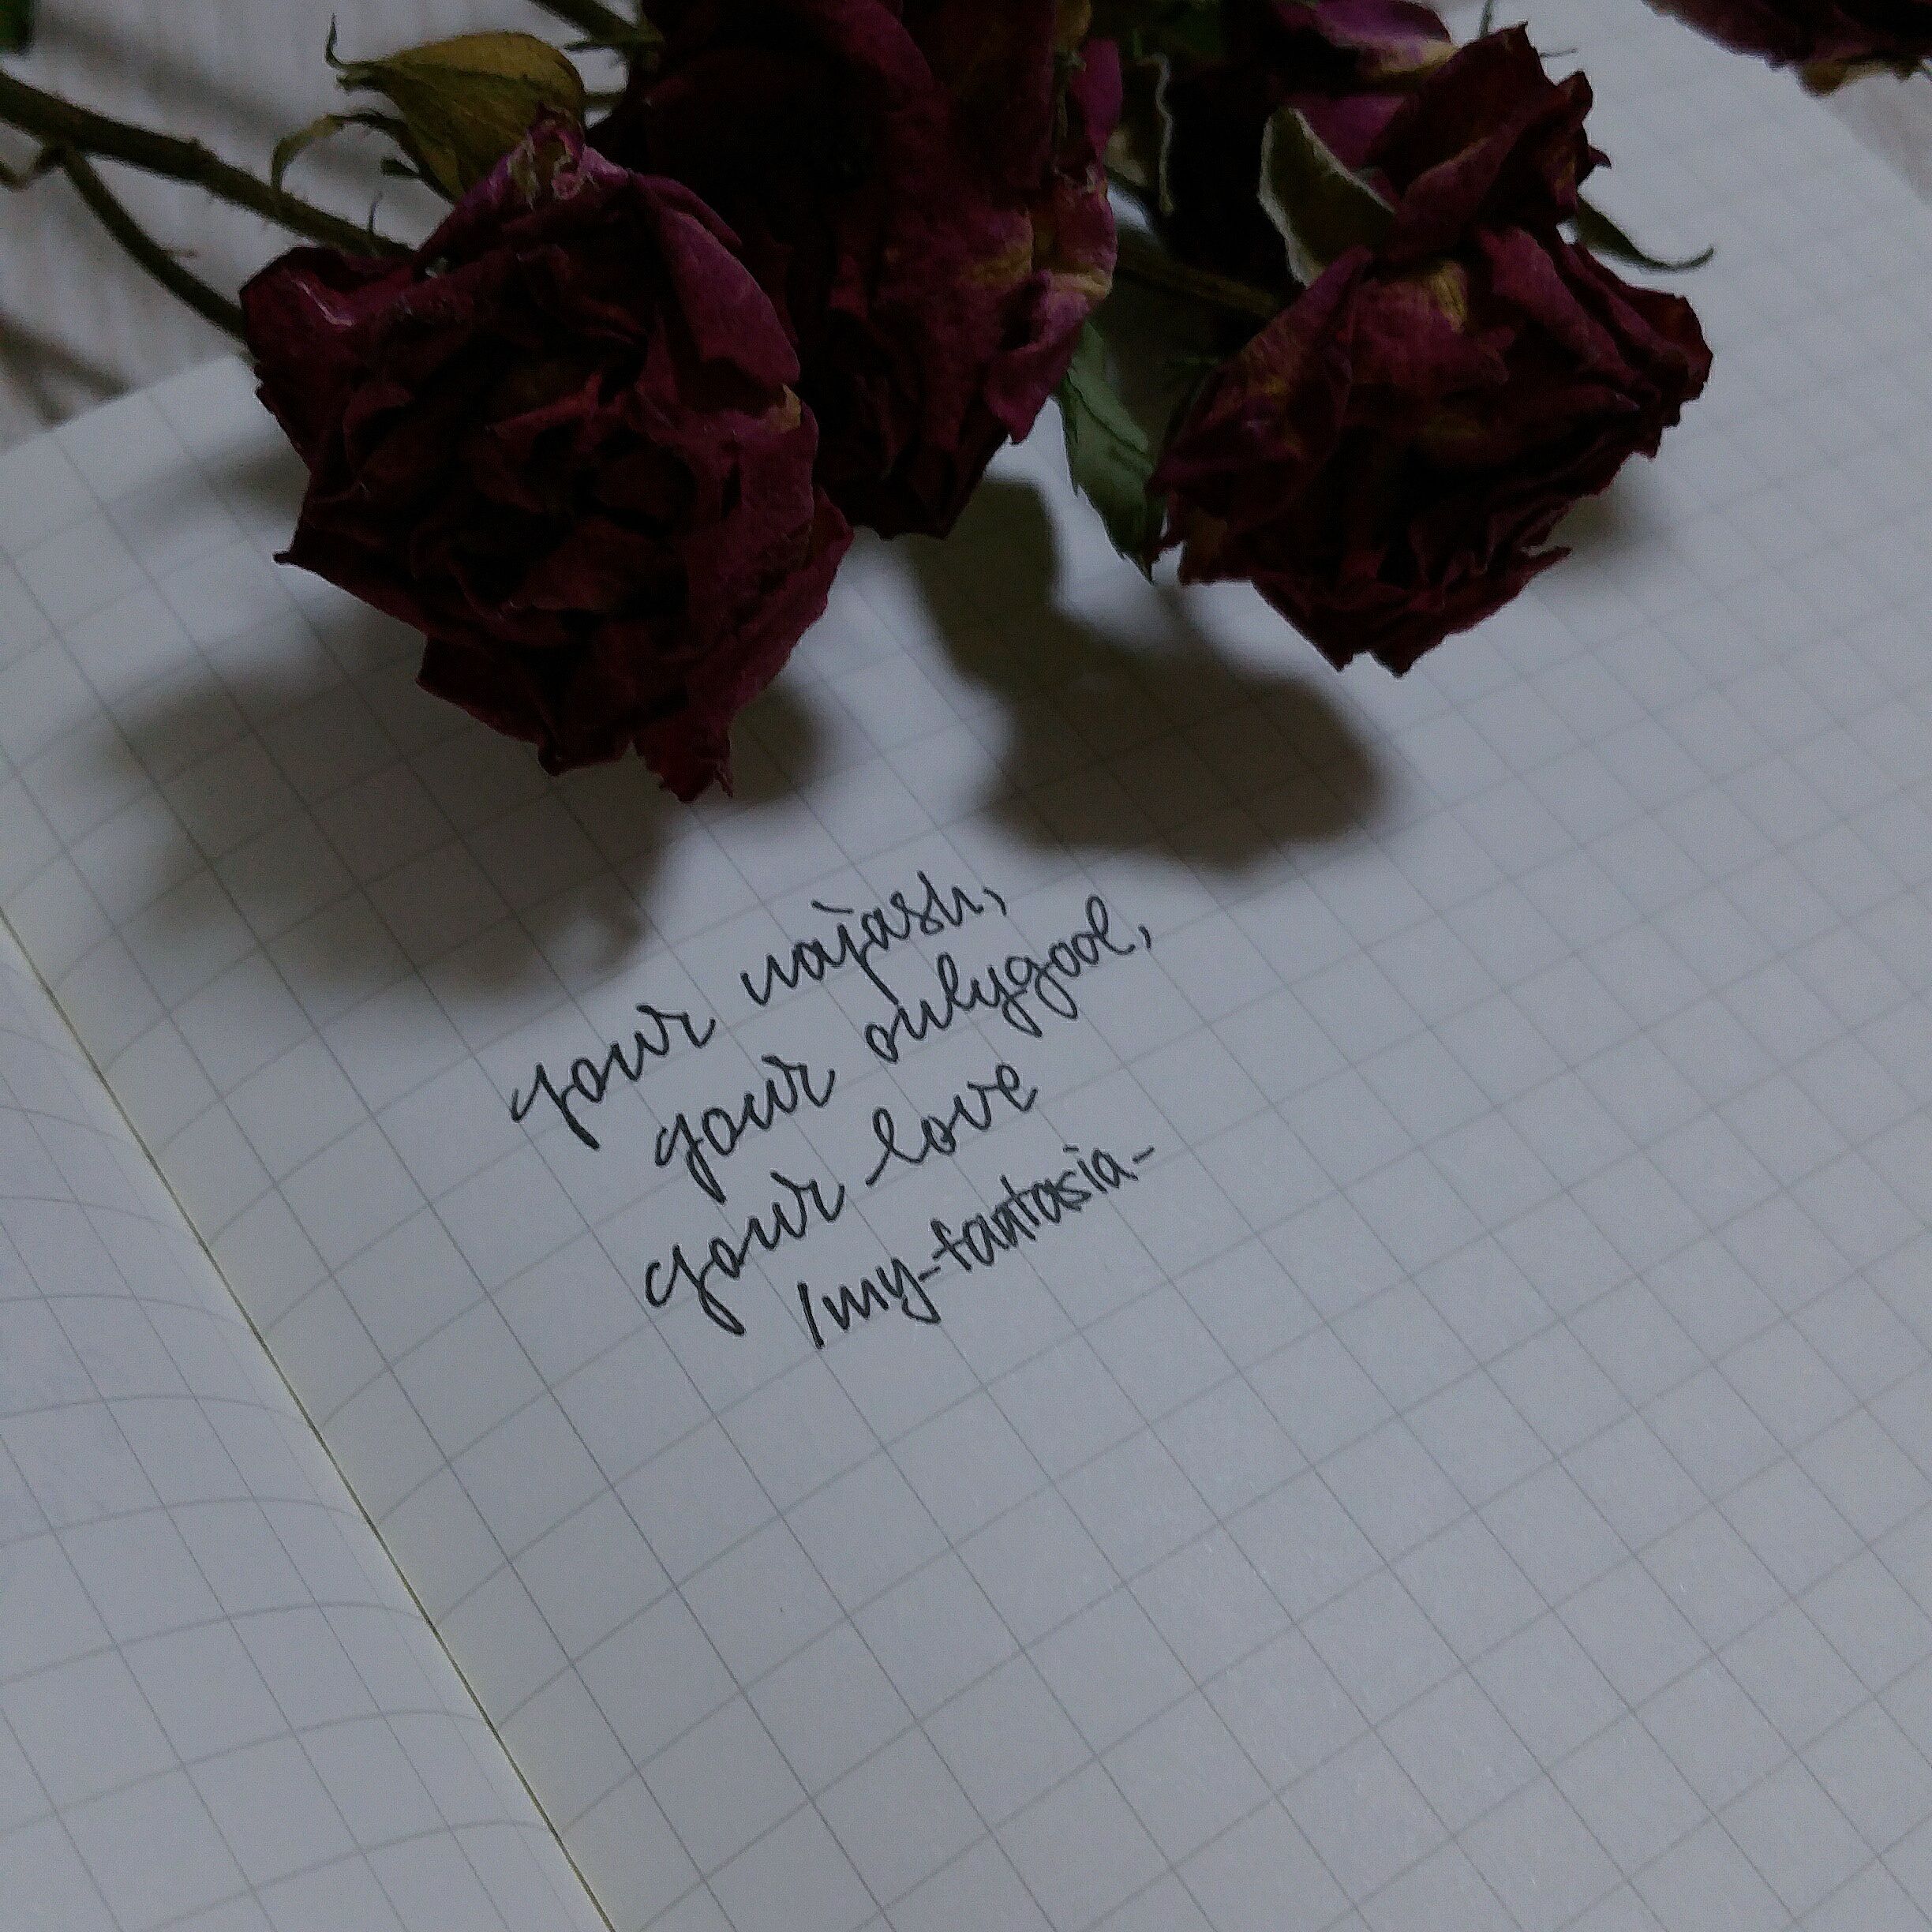 your najash,
your onlygod,
your love
/my-fantasia-